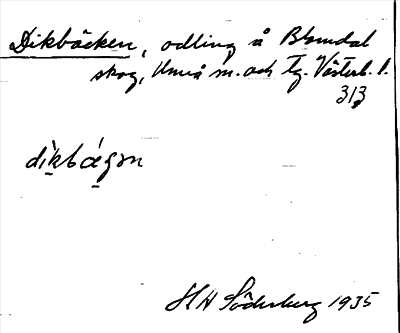 Dikbäcken, odling å Blomdal
skog, Umeå m. och tg. Västerb. l.
313
dìkbágən
H H Söderberg 1935